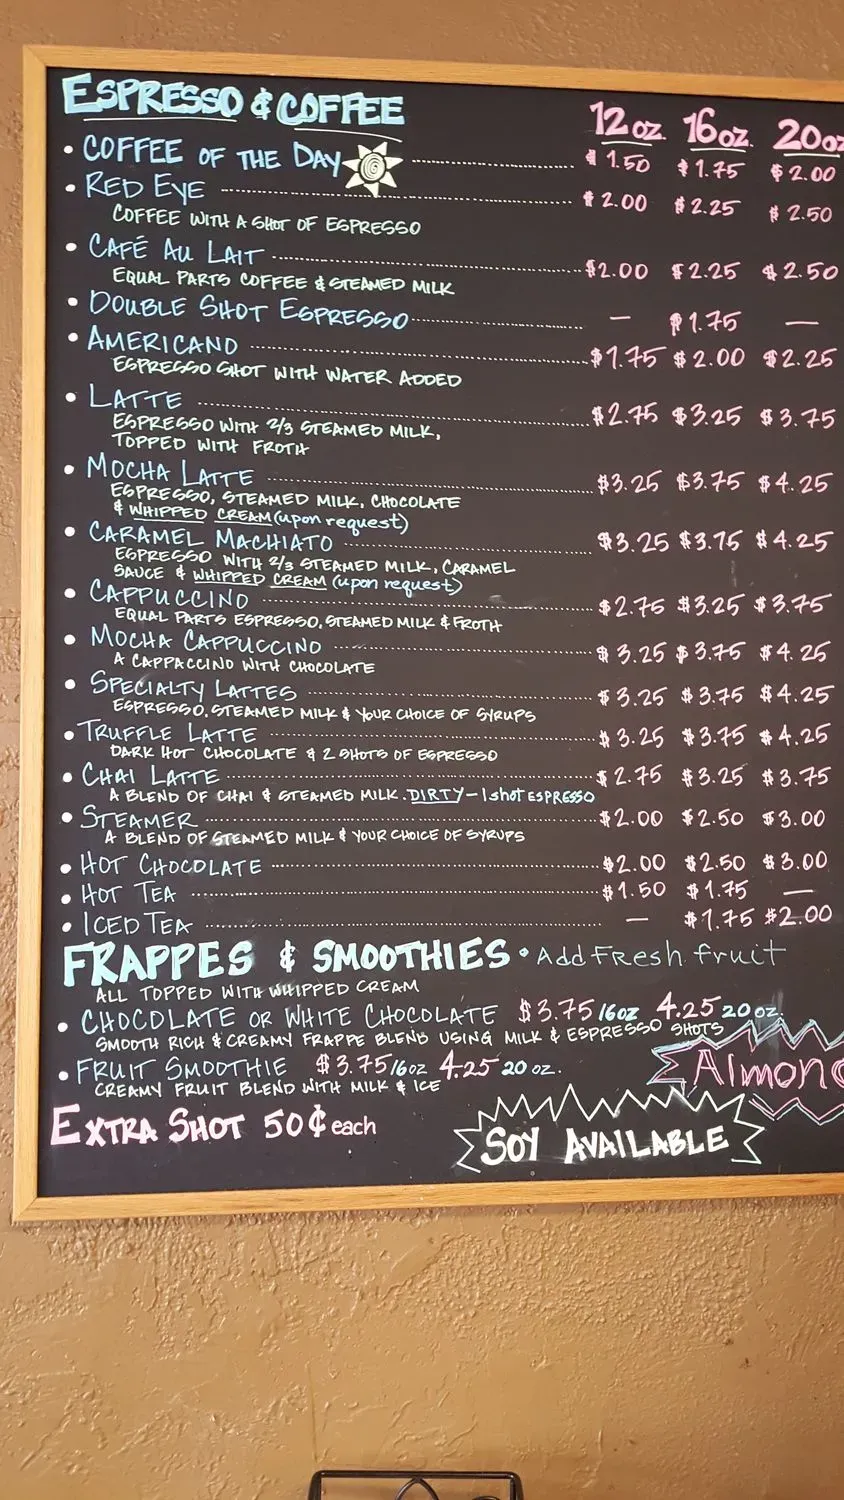 ESPRESSO & COFFEE 12 oz. 16 oz. 20 oz
• COFFEE OF THE DAY $1.50 $1.75 $2.00
• RED EYE $2.00 $2.25 $2.50
COFFEE WITH A SHOT OF ESPRESSO
• CAFÉ AU LAIT $2.00 $2.25 $2.50
EQUAL PARTS COFFEE & STEAMED MILK
• DOUBLE SHOT ESPRESSO — $1.75 —
• AMERICANO $1.75 $2.00 $2.25
ESPRESSO SHOT WITH WATER ADDED
• LATTE $2.75 $3.25 $3.75
ESPRESSO WITH 2/3 STEAMED MILK,
TOPPED WITH FROTH
• MOCHA LATTE $3.25 $3.75 $4.25
ESPRESSO, STEAMED MILK, CHOCOLATE
& WHIPPED CREAM (upon request)
• CARAMEL MACHIATO $3.25 $3.75 $4.25
ESPRESSO WITH 2/3 STEAMED MILK, CARAMEL
SAUCE & WHIPPED CREAM (upon request)
• CAPPUCCINO $2.75 $3.25 $3.75
EQUAL PARTS ESPRESSO, STEAMED MILK & FROTH
• MOCHA CAPPUCCINO $3.25 $3.75 $4.25
A CAPPACCINO WITH CHOCOLATE
• SPECIALTY LATTES $3.25 $3.75 $4.25
ESPRESSO, STEAMED MILK & YOUR CHOICE OF SYRUPS
• TRUFFLE LATTE $3.25 $3.75 $4.25
DARK HOT CHOCOLATE & 2 SHOTS OF ESPRESSO
• CHAI LATTE $2.75 $3.25 $3.75
A BLEND OF CHAI & STEAMED MILK. DIRTY - 1 shot ESPRESSO
• STEAMER $2.00 $2.50 $3.00
A BLEND OF STEAMED MILK & YOUR CHOICE OF SYRUPS
• HOT CHOCOLATE $2.00 $2.50 $3.00
• HOT TEA $1.50 $1.75 —
• ICED TEA — $1.75 $2.00
FRAPPES & SMOOTHIES • Add Fresh fruit
ALL TOPPED WITH WHIPPED CREAM
• CHOCOLATE OR WHITE CHOCOLATE $3.75 16oz 4.25 20 oz.
SMOOTH RICH & CREAMY FRAPPE BLEND USING MILK & ESPRESSO SHOTS
• FRUIT SMOOTHIE $3.75 16oz 4.25 20 oz.
CREAMY FRUIT BLEND WITH MILK & ICE
Almond
EXTRA SHOT 50¢ each
SOY AVAILABLE